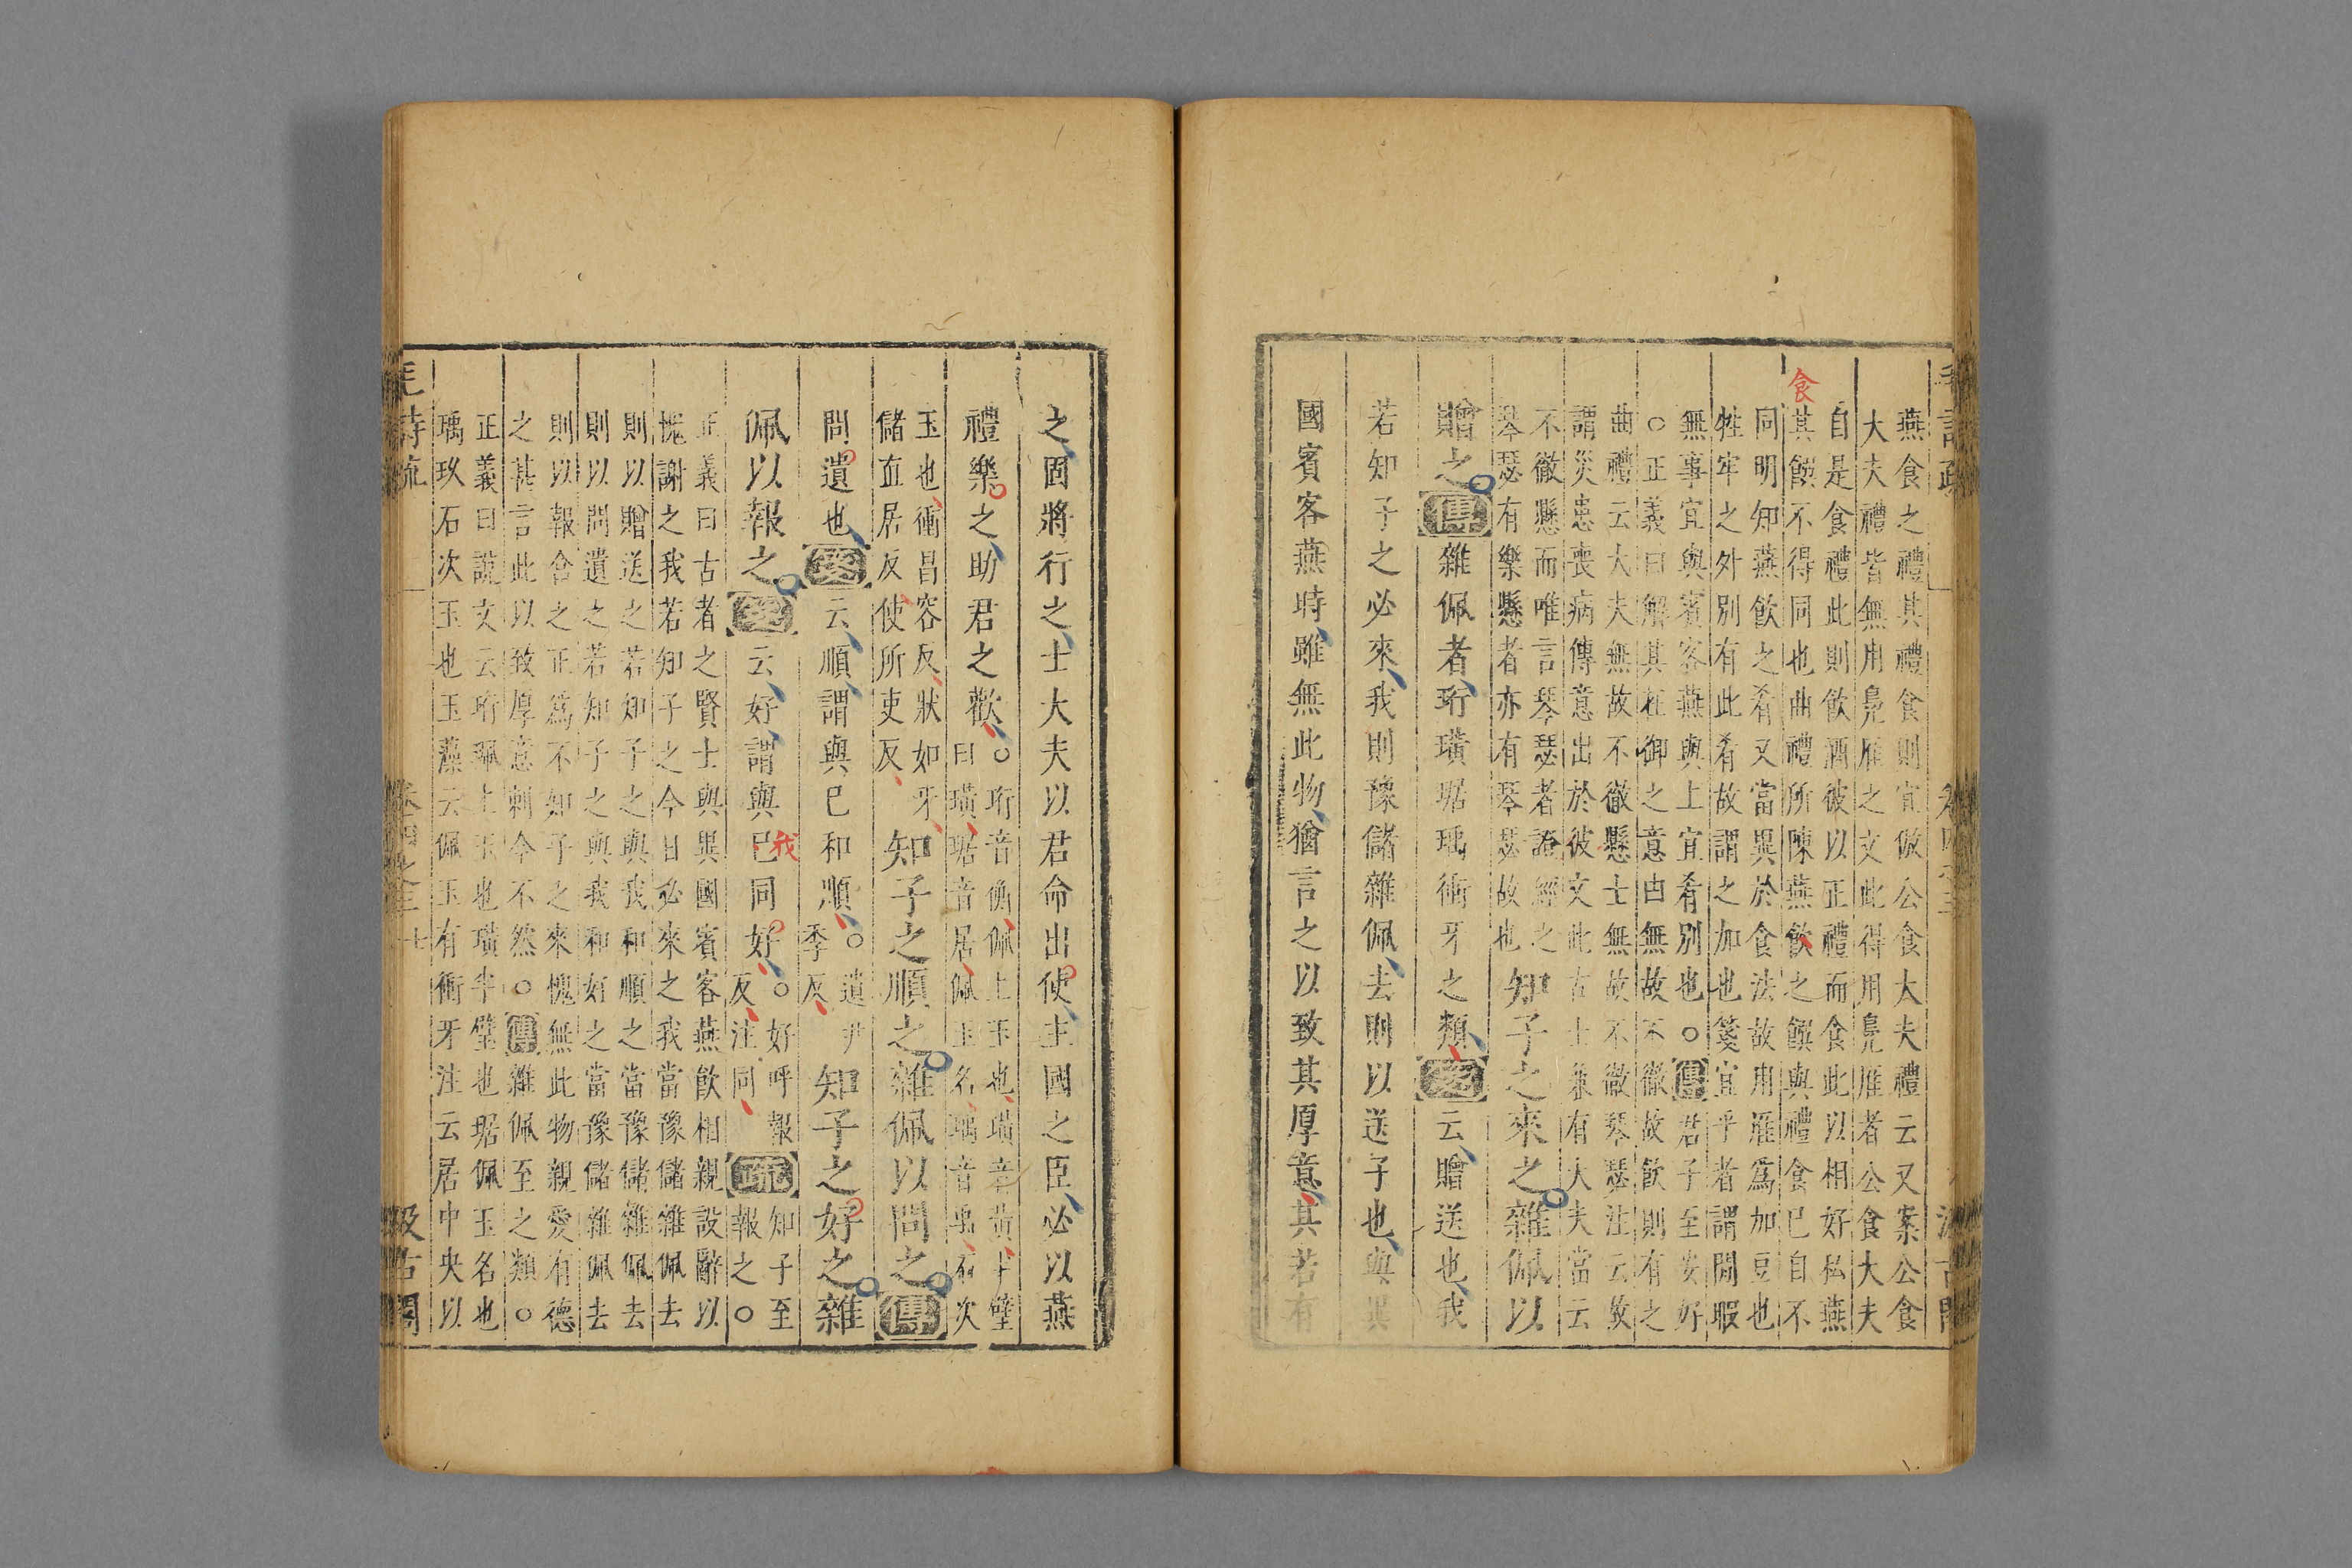 毛詩疏 卷四之三 汲古閣
燕食之禮其禮食則宜倣公食大夫禮云又案公食
大夫禮皆無用鳧雁之文此得用鳧雁者公食大夫
自是食禮此則飲酒彼以正禮而食此以相好私燕
食
其饌不得同也曲禮所陳燕飲之饌與禮食已自不
同明知燕飲之肴又當異於食法故用雁爲加豆也
牲牢之外別有此肴故謂之加也箋宜乎者謂閒暇
無事宜與賓客燕與上宜肴別也○傳君子至安好
○正義曰解其在御之意由無故不徹故飲則有之
曲禮云大夫無故不徹懸士無故不徹琴瑟注云故
謂災患喪病傳意出於彼文此古士兼有大夫當云
不徹懸而唯言琴瑟者證經之
琴瑟有樂懸者亦有琴瑟故也
知子之來之雜佩以
贈之傳雜佩者珩璜琚瑀衝牙之類箋云贈送也我
若知子之必來我則豫儲雜佩去則以送子也與異
國賓客燕時雖無此物猶言之以致其厚意其若有
之固將行之士大夫以君命出使主國之臣必以燕
禮樂之助君之歡○
珩音衡佩上玉也璜音黃半璧
曰璜琚音居佩玉名瑀音禹石次
玉也衝昌容反狀如牙
儲直居反使所吏反
知子之順之雜佩以問之傳
問遺也箋云順謂與已和順○
遺尹
季反
知子之好之雜
佩以報之箋云好謂與已同好○
我
好呼報
反注同
疏
知子至
報之○
正義曰古者之賢士與異國賓客燕飲相親設辭以
愧謝之我若知子之今日必來之我當豫儲雜佩去
則以贈送之若知子之與我和順之當豫儲雜佩去
則以問遺之若知子之與我和好之當豫儲雜佩去
則以報答之正爲不知子之來愧無此物親愛有德
之甚言此以致厚意刺今不然○傳雜佩至之類○
正義曰說文云珩珮上玉也璜半璧也琚佩玉名也
瑀玖石次玉也玉藻云佩玉有衝牙注云居中央以
毛詩疏 卷四之三 十 汲古閣